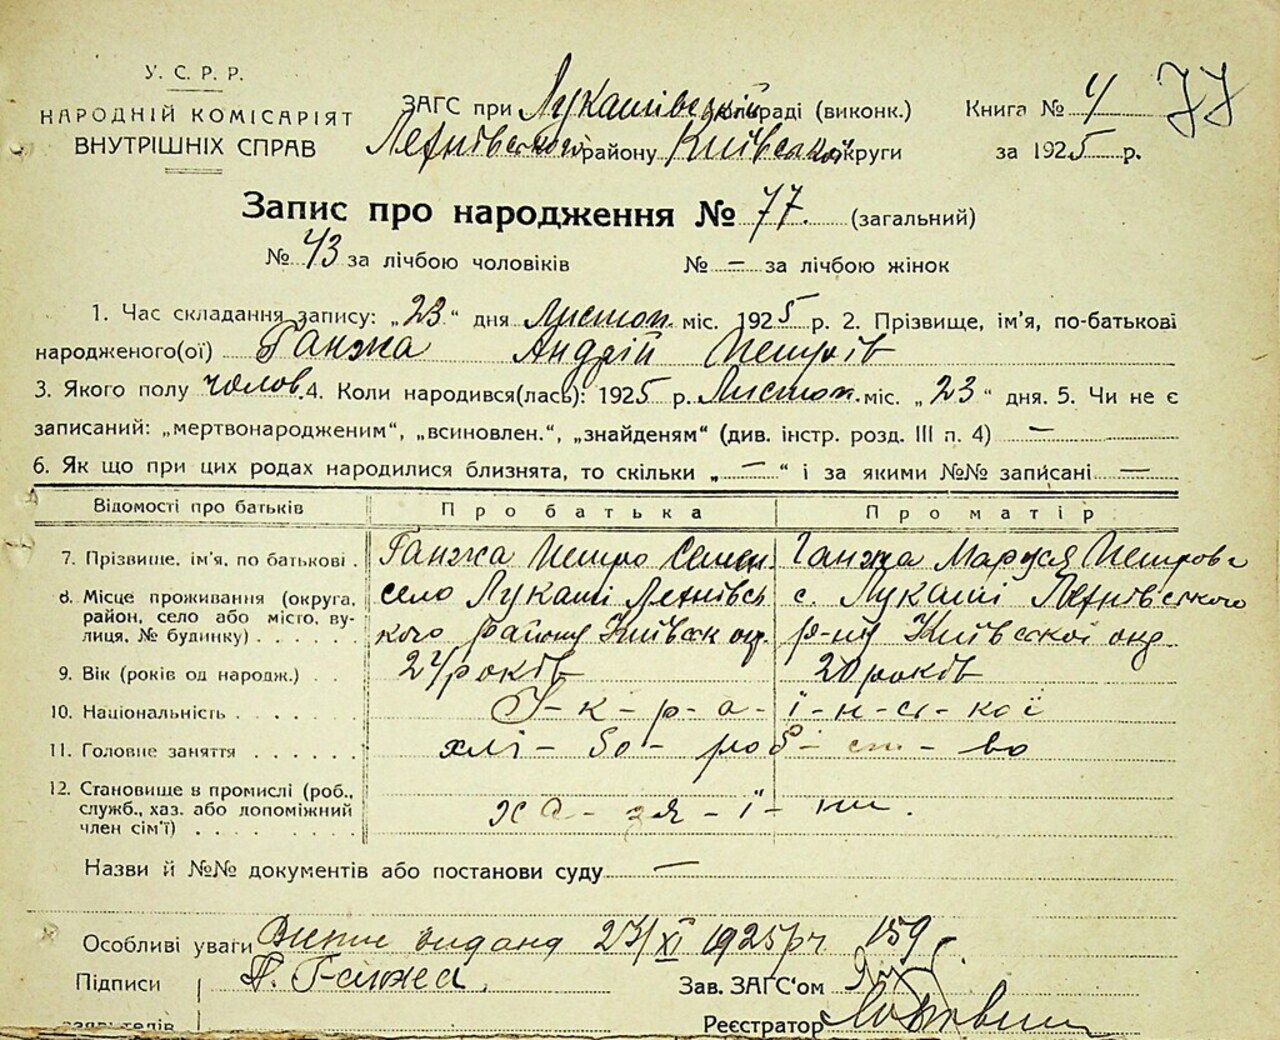 У. С. Р. Р.
НАРОДНІЙ КОМІСАРІЯТ
ВНУТРІШНІХ СПРАВ
ЗАГС при Лукашівській раді (виконк.)
району Київської округи
Книга № 4 77
за 1925 р.
Запис про народження № 77. (загальний)
№ 43 за лічбою чоловіків № — за лічбою жінок
1. Час складання запису: „23“ дня Листоп. міс. 1925 р. 2. Прізвище, ім'я, по-батькові
народженого(ої) Ганжа Андрій Петрів
3. Якого полу чолов. 4. Коли народився(лась): 1925 р. Листоп. міс. „23“ дня. 5. Чи не є
записаний: „мертвонародженим“, „всиновлен.“, „знайденям“ (див. інстр. розд. III п. 4) —
6. Як що при цих родах народилися близнята, то скільки „—“ і за якими №№ записані —
Відомості про батьків Про батька Про матір
7. Прізвище, ім'я, по батькові . Ганжа Петро Семен. Ганжа Маруся Петровa
8. Місце проживання (округа, село Лукаші с. Лукаші
район, село або місто, ву-
лиця, № будинку) . . . . . кого району Київськ окр. р-ну Київської окр.
9. Вік (років од народж.) . . 24 років 20 років
10. Національність . . . . . . У-к-р-а-ї-н-сь-кої
11. Головне заняття . . . . . хлі-бо-роб-ст-во
12. Становище в промислі (роб.,
служб., хаз. або допоміжний
член сім'ї) . . . . . . . ха-зя-ї-ни.
Назви й №№ документів або постанови суду —
Особливі уваги 1925 р
Підписи П. Ганжа. Зав. ЗАГС'ом
заявителів Реєстратор